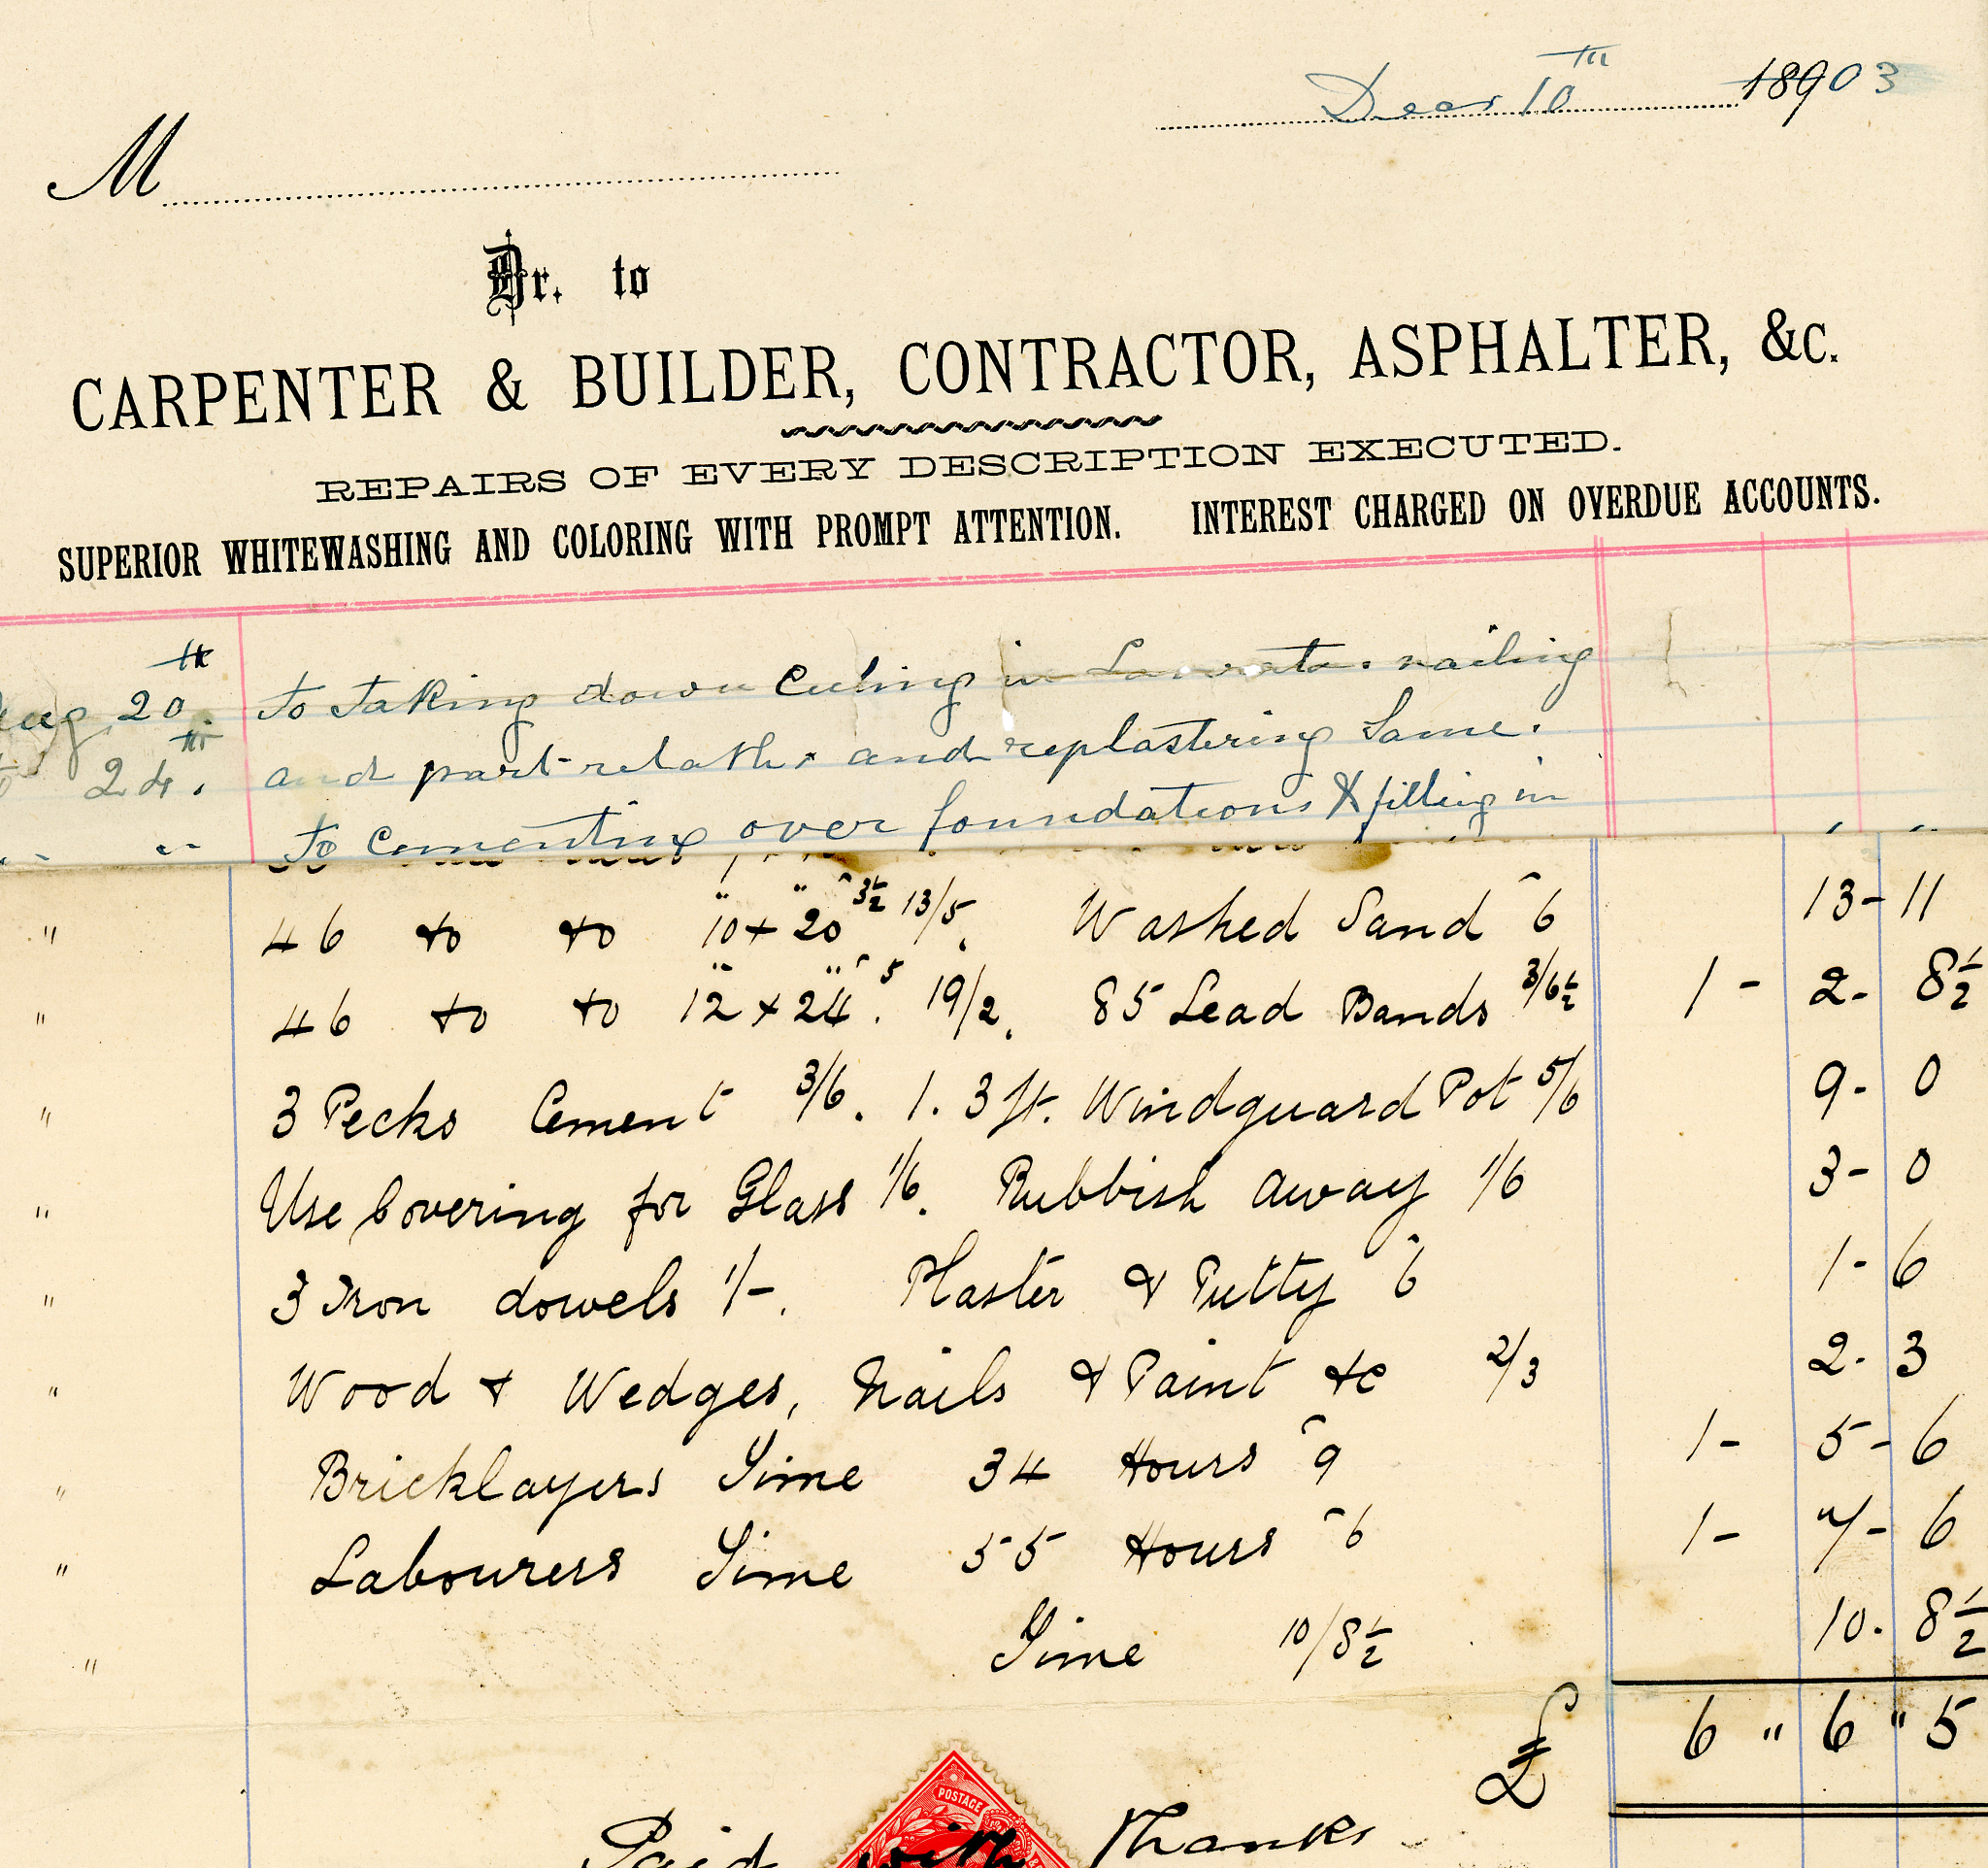 Decr 10th 18903
M
Dr. to
CARPENTER & BUILDER, CONTRACTOR, ASPHALTER, &c.
REPAIRS OF EVERY DESCRIPTION EXECUTED.
SUPERIOR WHITEWASHING AND COLORING WITH PROMPT ATTENTION. INTEREST CHARGED ON OVERDUE ACCOUNTS.
Aug 20th. To taking down Ceiling in nailing
24th. and part relath and replastering Same.
" " To Cementing over foundations & filling in
" 46 do do 10" x 20" ^3½ 13/5. Washed Sand ^6 13-11
" 46 do do 12" x 24" ^5. 19/2. 85 Lead Bands 3/6½ 1-2-8½
" 3 Pecks Cement 3/6. 1. 3 ft. Windguard Pot 5/6 9-0
" Use Covering for Glass 1/6. Rubbish away 1/6 3-0
" 3 Iron dowels 1/-. Plaster & Putty ^6 1-6
" Wood & Wedges, Nails & Paint &c 2/3 2-3
" Bricklayers Time 34 Hours ^9 1-5-6
" Labourers Time 55 Hours ^6 1-7-6
" Time 10/8½ 10-8½
£ 6 " 6 " 5
POSTAGE
Paid with Thanks